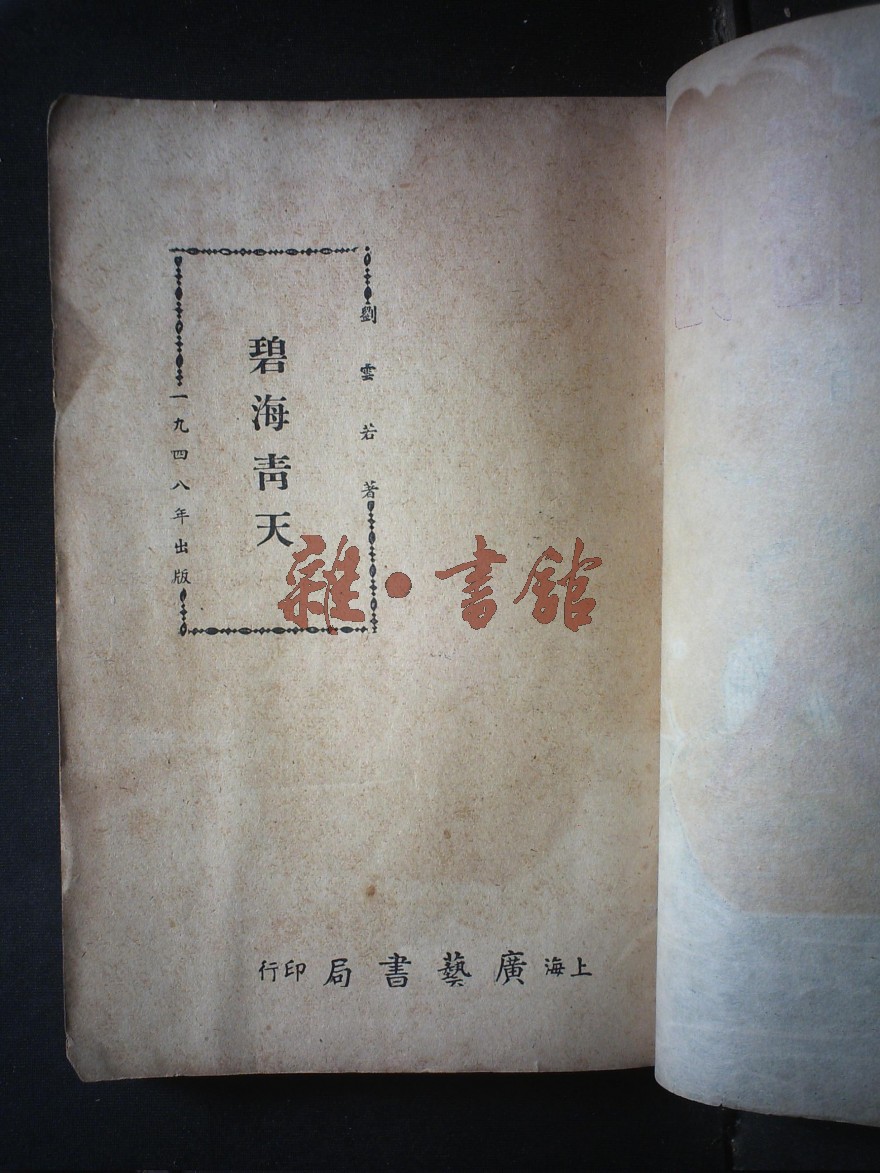 劉雲若著
碧海青天
一九四八年出版
雜·書館
上海廣藝書局印行